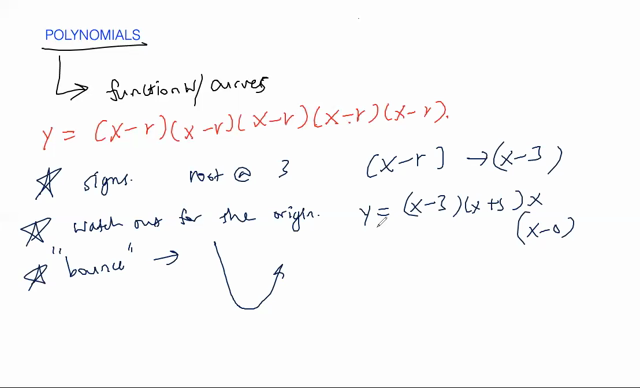 POLYNOMIALS
function w/ curves
y = (x-r)(x-r)(x-r)(x-r)(x-r).
signs. root @ 3
(x-r] → (x-3)
watch out for the origin.
y = (x-3)(x+3)x
(x-0)
"bounce" →